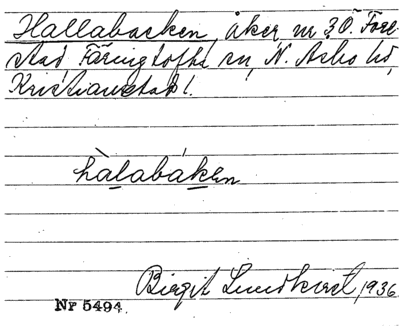 Hallabacken, åker nr 3 Ö. Fore-
stad Färingtofta sn, N. Åsbo hd,
Kristianstads l.
hàlabáken
Birgit Lundkvist, 1936
Nr 5494